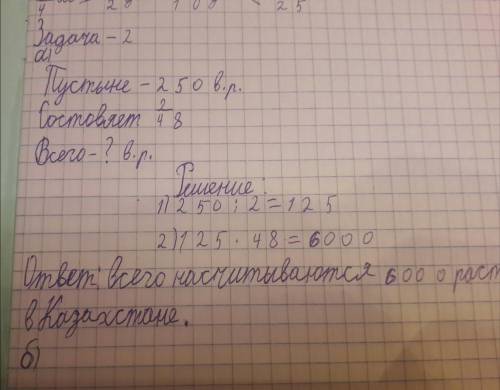 Задача - 2
а)
Пустыне - 250 в.р.
Состовляет 2/48
Всего - ? в.р.
Решение:
1) 250 : 2 = 125
2) 125 · 48 = 6000
Ответ: всего насчитываются 6000 раст
в Казахстане.
б)